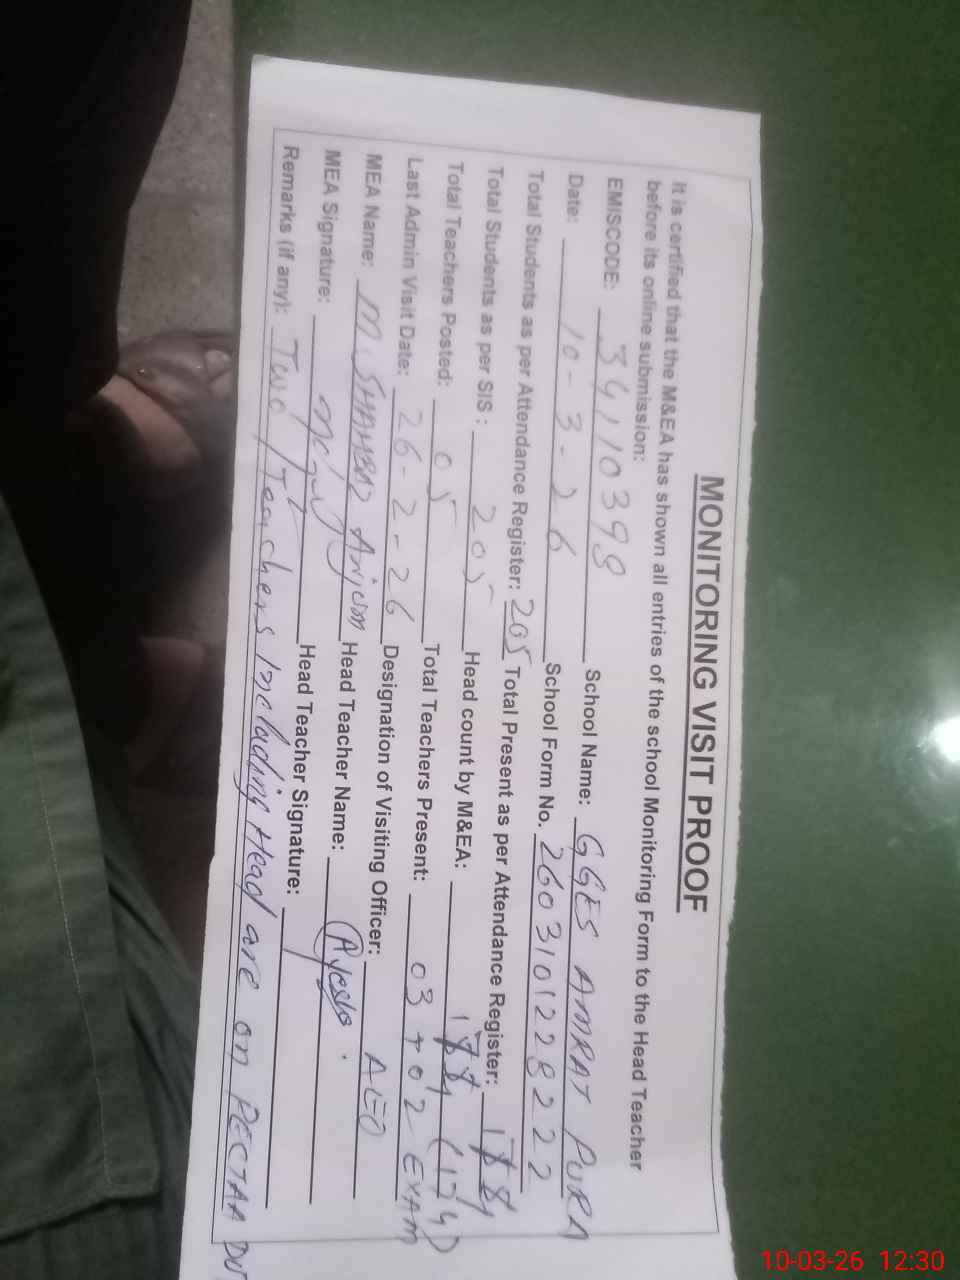 MONITORING VISIT PROOF
It is certified that the M&EA has shown all entries of the school Monitoring Form to the Head Teacher
before its online submission:
EMISCODE: 34110398 School Name: GGES AMRAT PURA
Date: 10-3-26 School Form No. 2603101228222
Total Students as per Attendance Register: 205 Total Present as per Attendance Register:
Total Students as per SIS: 205 Head count by M&EA: (174)
Total Teachers Posted: 05 Total Teachers Present: 03+02 EXAM
Last Admin Visit Date: 26-2-26 Designation of Visiting Officer: AEO
MEA Name: M SHAHBAZ Anjum Head Teacher Name: Ayesha
MEA Signature: Head Teacher Signature:
Remarks (if any): Two Teachers Including Head are on PECTAA DUT
10-03-26 12:30